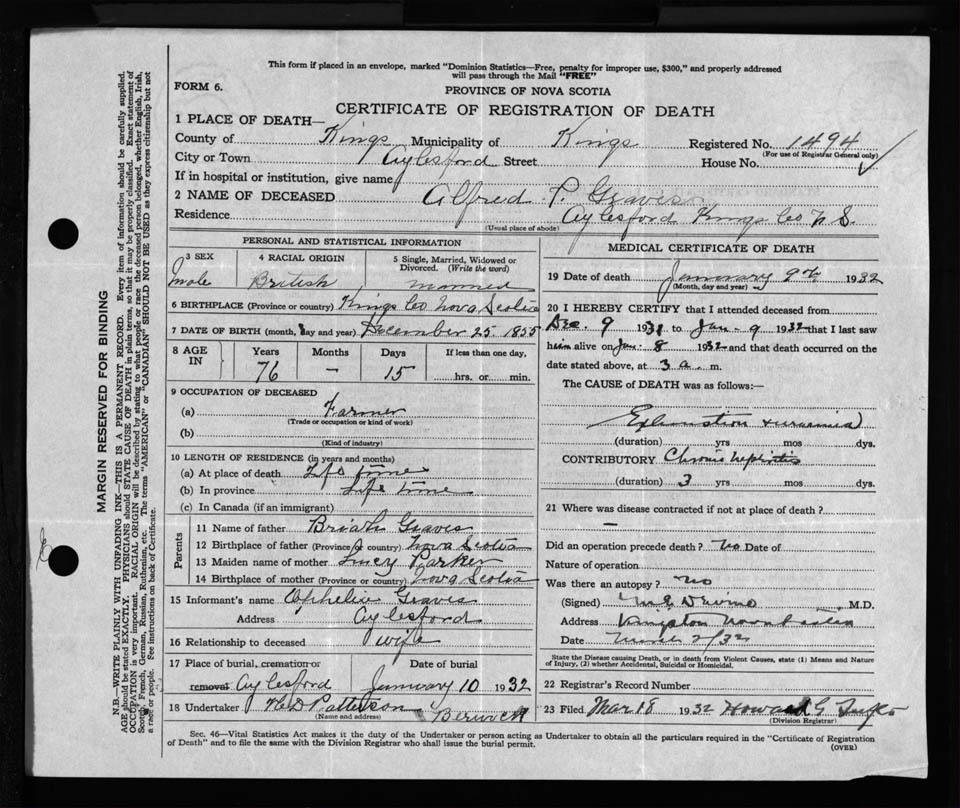 This form if placed in an envelope, marked "Dominion Statistics—Free, penalty for improper use, $300," and properly addressed
will pass through the Mail "FREE"
FORM 6.
PROVINCE OF NOVA SCOTIA
CERTIFICATE OF REGISTRATION OF DEATH
1 PLACE OF DEATH—
County of Kings Municipality of Kings Registered No. 1494
(For use of Registrar General only)
City or Town Aylesford Street House No.
If in hospital or institution, give name
2 NAME OF DECEASED Alfred P. Graves
Residence Aylesford Kings Co N.S.
(Usual place of abode)
PERSONAL AND STATISTICAL INFORMATION
3 SEX
male
4 RACIAL ORIGIN
British
5 Single, Married, Widowed or
Divorced. (Write the word)
married
6 BIRTHPLACE (Province or country) Kings Co Nova Scotia
7 DATE OF BIRTH (month, day and year) December 25 1855
8 AGE
IN
Years Months Days If less than one day,
76 - 15 hrs. or min.
9 OCCUPATION OF DECEASED
(a) Farmer
(Trade or occupation or kind of work)
(b)
(Kind of industry)
10 LENGTH OF RESIDENCE (in years and months)
(a) At place of death Life time
(b) In province Life time
(c) In Canada (if an immigrant)
Parents
11 Name of father Graves
12 Birthplace of father (Province or country) Nova Scotia
13 Maiden name of mother Lucy Parker
14 Birthplace of mother (Province or country) Nova Scotia
15 Informant's name Ophelia Graves
Address Aylesford
16 Relationship to deceased wife
17 Place of burial, cremation or Date of burial
removal Aylesford January 10 1932
18 Undertaker Patterson Berwick
(Name and address)
MEDICAL CERTIFICATE OF DEATH
19 Date of death January 9th 1932
(Month, day and year)
20 I HEREBY CERTIFY that I attended deceased from
Dec. 9 1931 to Jan. 9 1932 that I last saw
him alive on Jan. 8 1932 and that death occurred on the
date stated above, at 3 a. m.
The CAUSE of DEATH was as follows:—
Exhaustion uraemia
(duration) yrs mos dys.
CONTRIBUTORY Chronic nephritis
(duration) 3 yrs mos dys.
21 Where was disease contracted if not at place of death?
—
Did an operation precede death? No Date of
Nature of operation
Was there an autopsy? no
(Signed) M.D.
Address Kingston Nova Scotia
Date 2/32
State the Disease causing Death, or in death from Violent Causes, state (1) Means and Nature
of Injury, (2) whether Accidental, Suicidal or Homicidal.
22 Registrar's Record Number
23 Filed Mar 18 1932 Howard G
(Division Registrar)
Sec. 46—Vital Statistics Act makes it the duty of the Undertaker or person acting as Undertaker to obtain all the particulars required in the "Certificate of Registration
of Death" and to file the same with the Division Registrar who shall issue the burial permit.
(OVER)
MARGIN RESERVED FOR BINDING
N.B.—WRITE PLAINLY WITH UNFADING INK—THIS IS A PERMANENT RECORD. Every item of information should be carefully supplied.
AGE should be stated EXACTLY. PHYSICIANS should STATE CAUSE OF DEATH in plain terms, so that it may be properly classified. Exact statement of
OCCUPATION is very important. RACIAL ORIGIN will be described by stating to what people or race the deceased person belonged, whether English, Irish,
Scotch, French, German, Russian, Ruthenian, etc. The terms "AMERICAN" or "CANADIAN" SHOULD NOT BE USED as they express citizenship but not
a race or people. See instructions on back of Certificate.